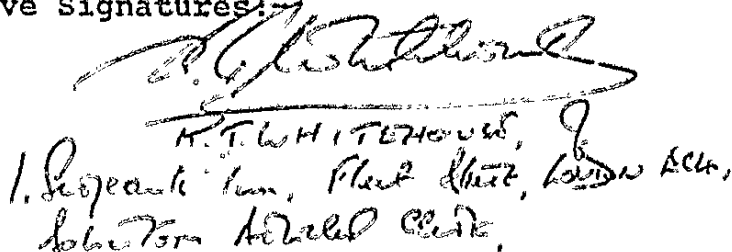 ve Signatures:-
K.T. WHITEHOUSE,
1. Serjeants' Inn, Fleet Street, LONDON EC4,
Solicitors Articled Clerk.